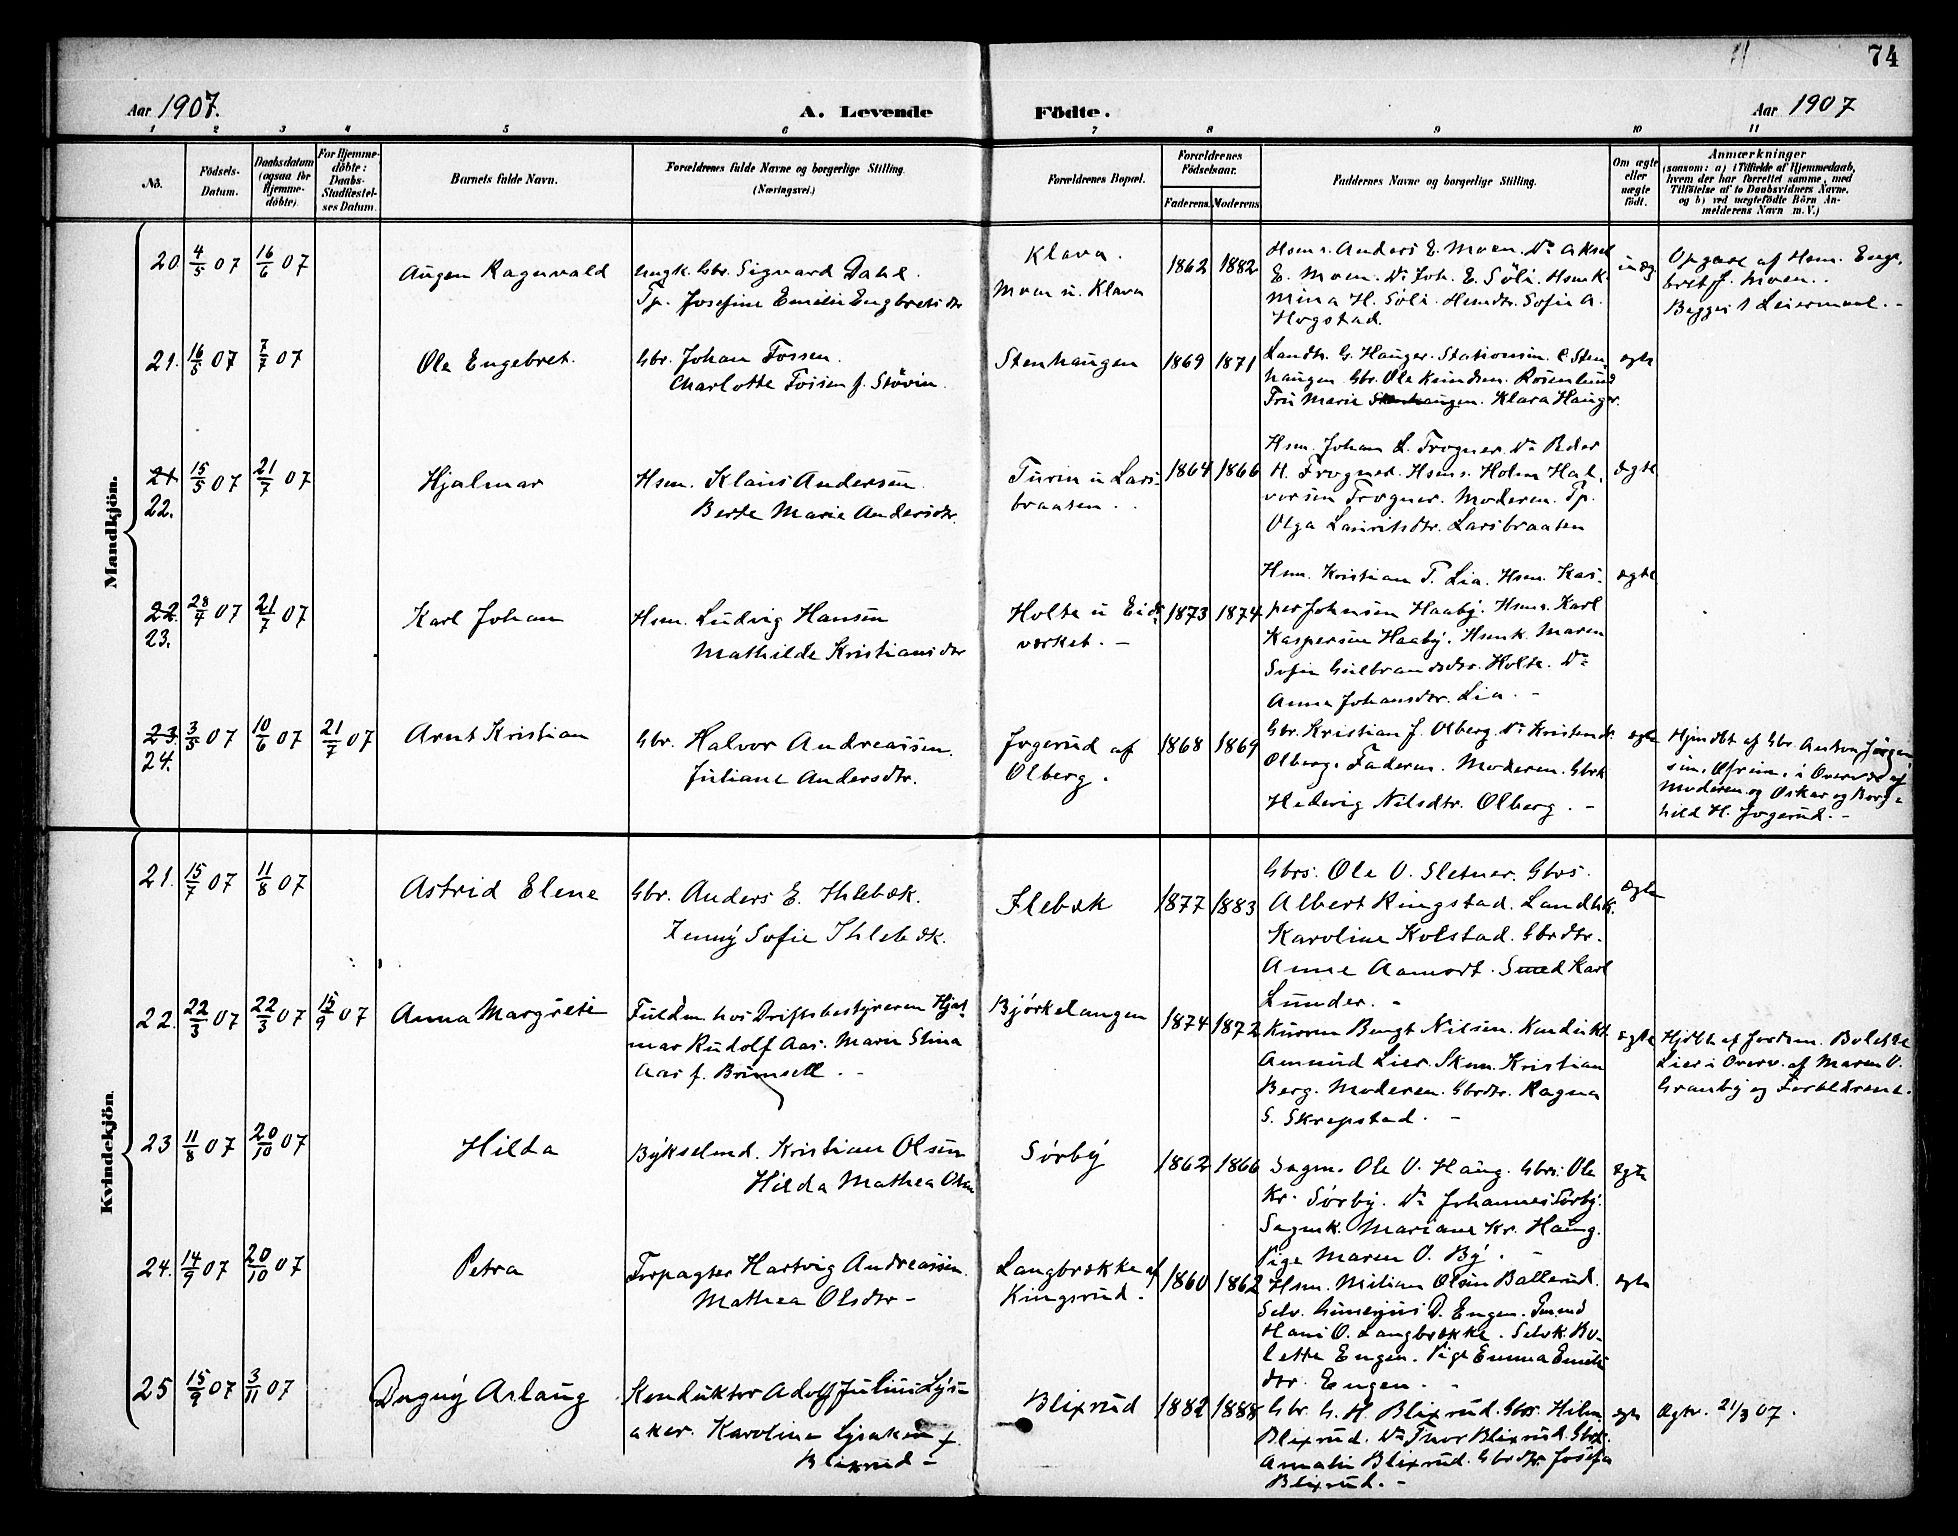 74
Aar 1907.
A. Levende
Födte.
Aar 1907
1 2 3 4 5 6 7 8 9 10 11
No.
Födsels-
Datum.
Daabsdatum
(ogsaa för
Hjemme-
döbte)
For Hjemme-
döbte:
Daabs-
Stadfæstel-
ses Datum.
Barnets fulde Navn.
Forældrenes fulde Navne og borgerlige Stilling.
(Næringsvei.)
Forældrenes Bopæl.
Forældrenes
Födselsaar.
Faderens. Moderens.
Faddernes Navne og borgerlige Stilling.
Om ægte
eller
uægte
født.
Anmærkninger
(saasom: a) i Tilfælde af Hjemmedaab,
hvem der har forrettet samme, med
Tilföielse af to Daabsvidners Navne.
og b) ved uægtefödte Börn An-
melderens Navn m. V.)
Mandkjön.
20. 4/5 07 16/6 07
Augen Ragnvald
Ungk. Gbr. Sigvard Dahl.
Tp. Josefine Emilie Engbretsdtr
Klava.
Moen u. Klava
1862 1882
Hsms. Anders E. Moen. Do Aksel
E. Moen. Do Joh. E. Söli. Hsmk.
Mina H. Söli. Hsmdtr. Sofie A.
Hogstad.
uæg.
Opgave af Hsm. Enge-
bret J. Moen.
Begges 1 Leiermaal.
21. 16/5 07 7/7 07
Ole Engebret.
Gbr. Johan Fossen.
Charlotte Fossen f. Stövin.
Stenhaugen
1869 1871
Landh. G. Hauger. Stationsm. C. Sten-
haugen Gbr. Ole Knudsen. Rosenlund
Fru Marie Stenhaugen. Klara Hauger.
ægte
21 22. 15/5 07 21/7 07
Hjalmar
Hsm. Klaus Andersen
Berte Marie Andersdtr.
Turin u Lars-
braaten.
1864 1866
Hsm. Johan L. Frogner. Do Peder
H. Frogner. Hsms. Holm Hal-
vorsen Frogner. Moderen. Tp.
Olga Lauritsdtr. Larsbraaten
ægte
22. 23. 28/4 07 21/7 07
Karl Johan
Hsm. Ludvig Hansen
Mathilde Kristiansdtr
Holte u Eids-
værket.
1873 1874
Hsm. Kristian T. Lia. Hsm. Kas-
per Johnsen Haaby. Hsms. Karl
Kaspersen Haaby. Hsmk. Maren
Sofie Gulbrandsdtr. Holte. Do
Anna Johansdtr. Lia.
ægte
23. 24. 3/5 07 10/6 07 21/7 07
Arnt Kristian
Gbr. Halvor Andreassen.
Juliane Andersdtr.
Jogerud af
Olberg.
1868 1869
Gbr. Kristian J. Olberg. Do Kristen
Olberg. Faderen. Moderen. Gbrk
Hedevig Nilsdtr. Olberg.
ægte
Hjmdbt af Gbr. Anton Jörgen-
sen. i Overvær af
Moderen og Oskar og Borg-
hild H. Jogerud.
Kvindekjön.
21. 15/7 07 11/8 07
Astrid Elene
Gbr. Anders E. Ihlebæk.
Jenny Sofie Ihlebæk.
Ilebæk
1877 1883
Gbrs. Ole O. Sletner. Gbrs.
Albert Ringstad. Landhk.
Karoline Kolstad. Gbrdtr.
Anne Aamodt. Smed Karl
Lunder.
ægte
22. 22/3 07 22/3 07 15/9 07
Anna Margrete
Fuldm. hos Driftsbestyreren Hjal-
mar Rudolf Aas. Marie Stina
Aas f. Brunsell.
Bjørkelangen
1874 1872
Bengt Nilsen. Konduktör
Amund Lier. Skm. Kristian
Berg. Moderen. Gbrdtr. Ragna
S. Skrepstad.
ægte
Hjdbt af Jordm. Bolette
Lier i Overv. af Maren O.
Granby og Forældrene.
23 11/8 07 20/10 07
Hilda
Bykselmd. Kristian Olsen
Hilda Mathea Olsen
Sørby
1862 1866
Sagm. Ole O. Haug. Gbrs. Ole
Kr. Sørby. Do Johannes Sørby.
Sagmk. Mariane Kr. Haug.
Pige Maren O. By.
ægte
24. 14/9 07 20/10 07
Petra
Forpagter Hartvig Andreassen.
Mathea Olsdtr
Langbrække af
Kingsrud.
1860 1862
Hsm. Milian Olsen Ballerud.
Selv. Gunerius D. Engen. Smed
Hans O. Langbrække. Selvk. Bo-
lette Engen. Pige Emma Emils-
dtr. Engen.
ægte
25 15/9 07 3/11 07
Dagny Aslaug
Konduktør Adolf Julius Lys-
aker. Karoline Lysaker f.
Blixrud
Blixrud
1882 1888
Gbr. G. H. Blixrud. Gbr. Hilm.
Blixrud. Do Thor Blixrud. Gbrk.
Amalie Blixrud. Gbrdtr. Josefa
Blixrud.
ægte
Ægtv. 21/3 07.